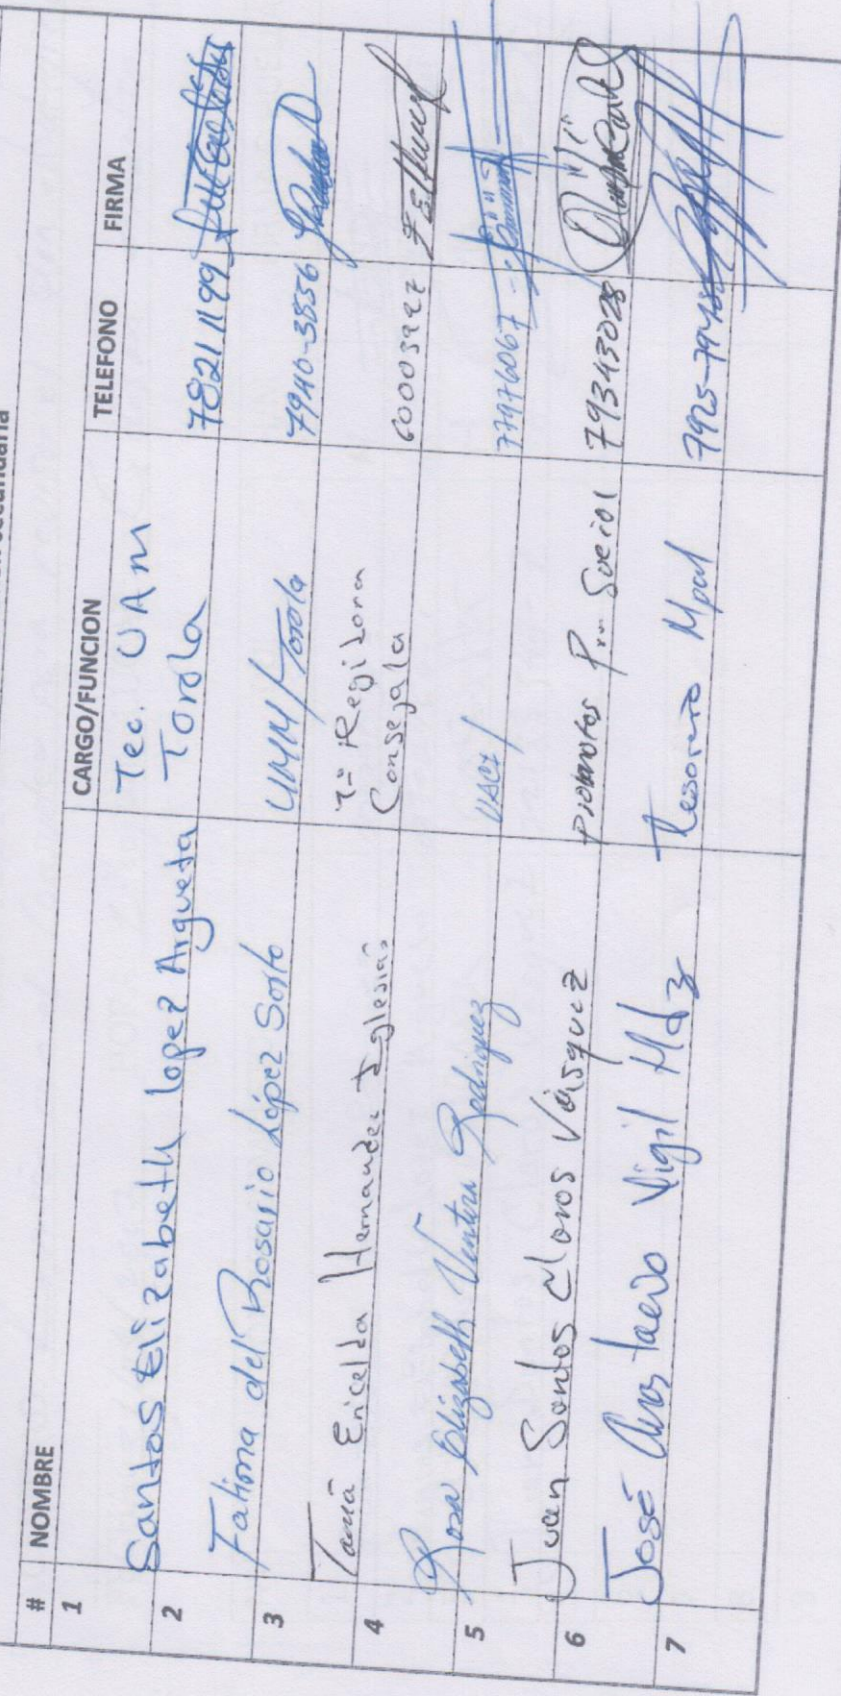 secundaria
# NOMBRE CARGO/FUNCION TELEFONO FIRMA
1 Santos Elizabeth lopez Argueta Tec. UAM Torola 7821 1199
2 Fatima del Rosario López Sorto UMM/Torola 7940-3856
3 Ericelda Hernandez Iglesias Regidora Consejala 60003927
4 Rosa Elizabeth Ventura Rodriguez UACI/ 77976067
5 Juan Santos Claros Vásquez Promotor Social 79343028
6 José Anastacio Vigil Hdz Tesorero Mpal 7925-
7